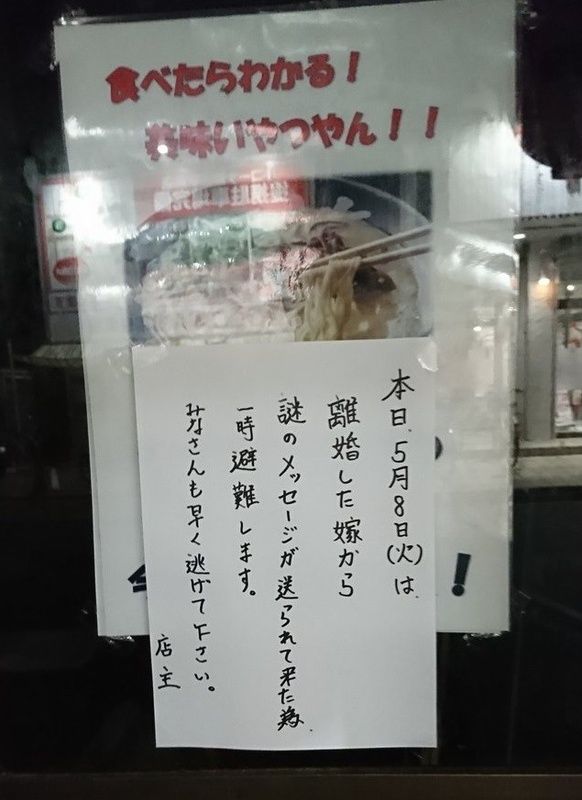 食べたらわかる！
美味いやつやん！！
本日、5月8日(火)は、
離婚した嫁から
謎のメッセージが送られて来た為、
一時避難します。
みなさんも早く逃げて下さい。
店主
！